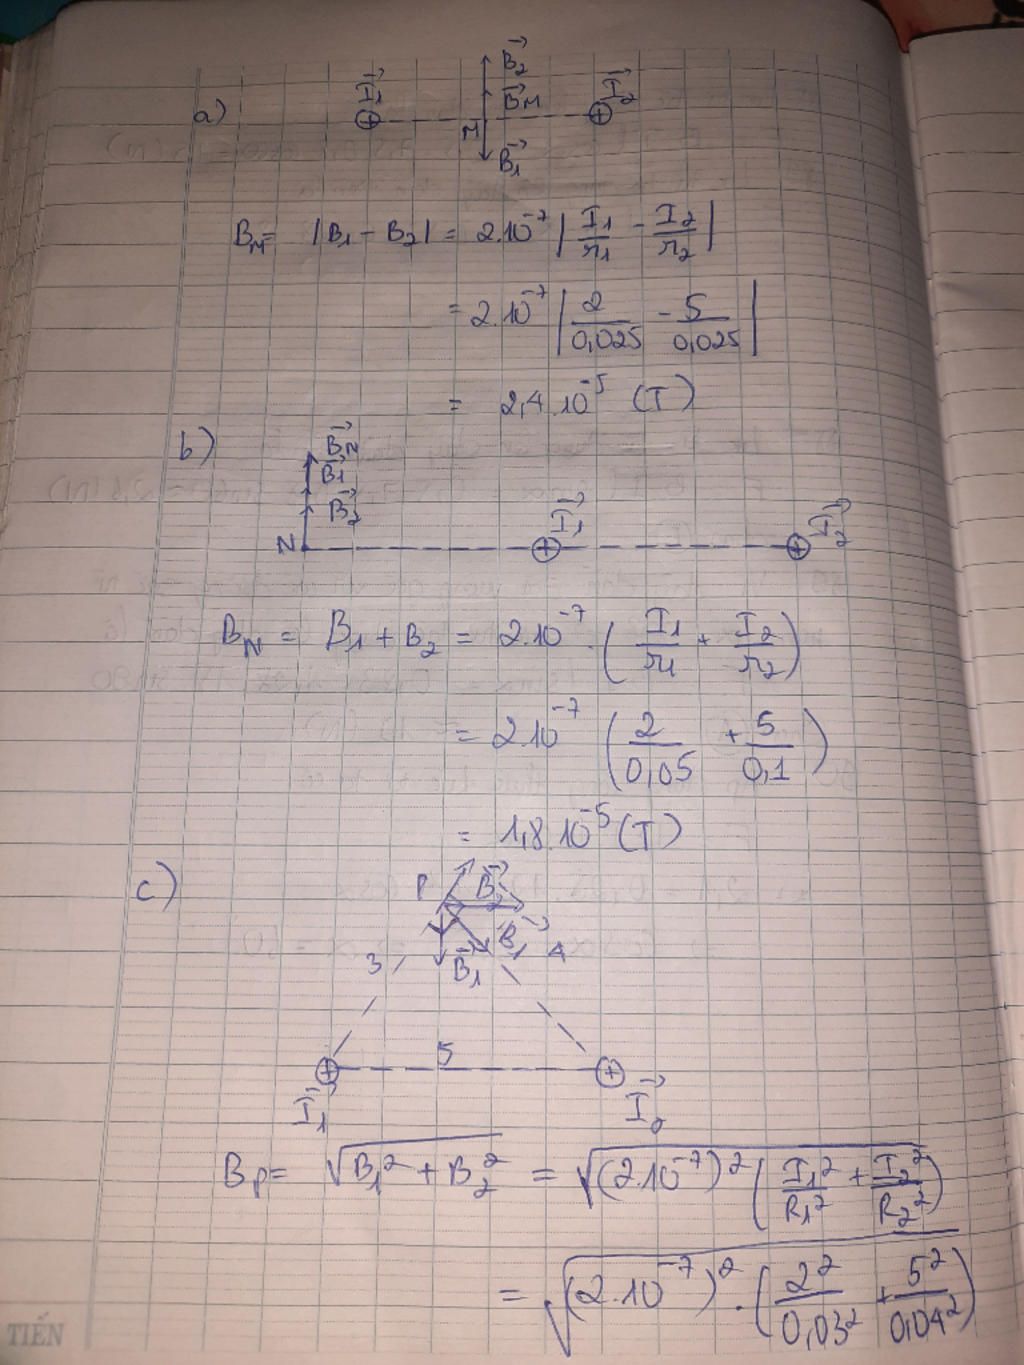 a) I₁⃗ B₂⃗ B_M⃗ I₂⃗
M B₁⃗
B_M = |B₁ - B₂| = 2.10⁻⁷ | I₁/r₁ - I₂/r₂ |
= 2.10⁻⁷ | 2/0,025 - 5/0,025 |
= 2,4.10⁻⁵ (T)
b) B_N⃗
B₁⃗
B₂⃗
N I₁⃗ I₂⃗
B_N = B₁ + B₂ = 2.10⁻⁷ . ( I₁/r₁ + I₂/r₂ )
= 2.10⁻⁷ ( 2/0,05 + 5/0,1 )
= 1,8.10⁻⁵ (T)
c) P B₂⃗
3 B₁⃗ 4
5
I₁⃗ I₂⃗
B_P = √(B₁² + B₂²) = √((2.10⁻⁷)² ( I₁²/R₁² + I₂²/R₂² ))
= √((2.10⁻⁷)² . ( 2²/0,03² + 5²/0,04² ))
TIẾN